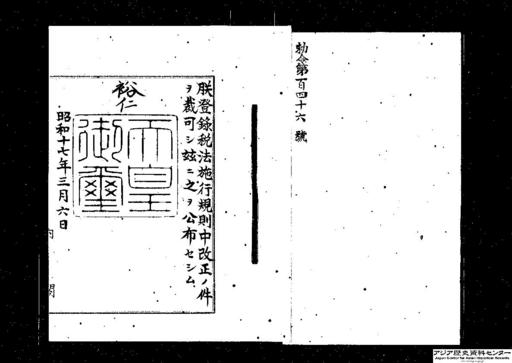 勅令第百四十六號
朕登錄税法施行規則中改正ノ件
ヲ裁可シ玆ニ之ヲ公布セシム
裕仁
天皇
御璽
昭和十七年三月六日
内閣
アジア歴史資料センター
Japan Center for Asian Historical Records